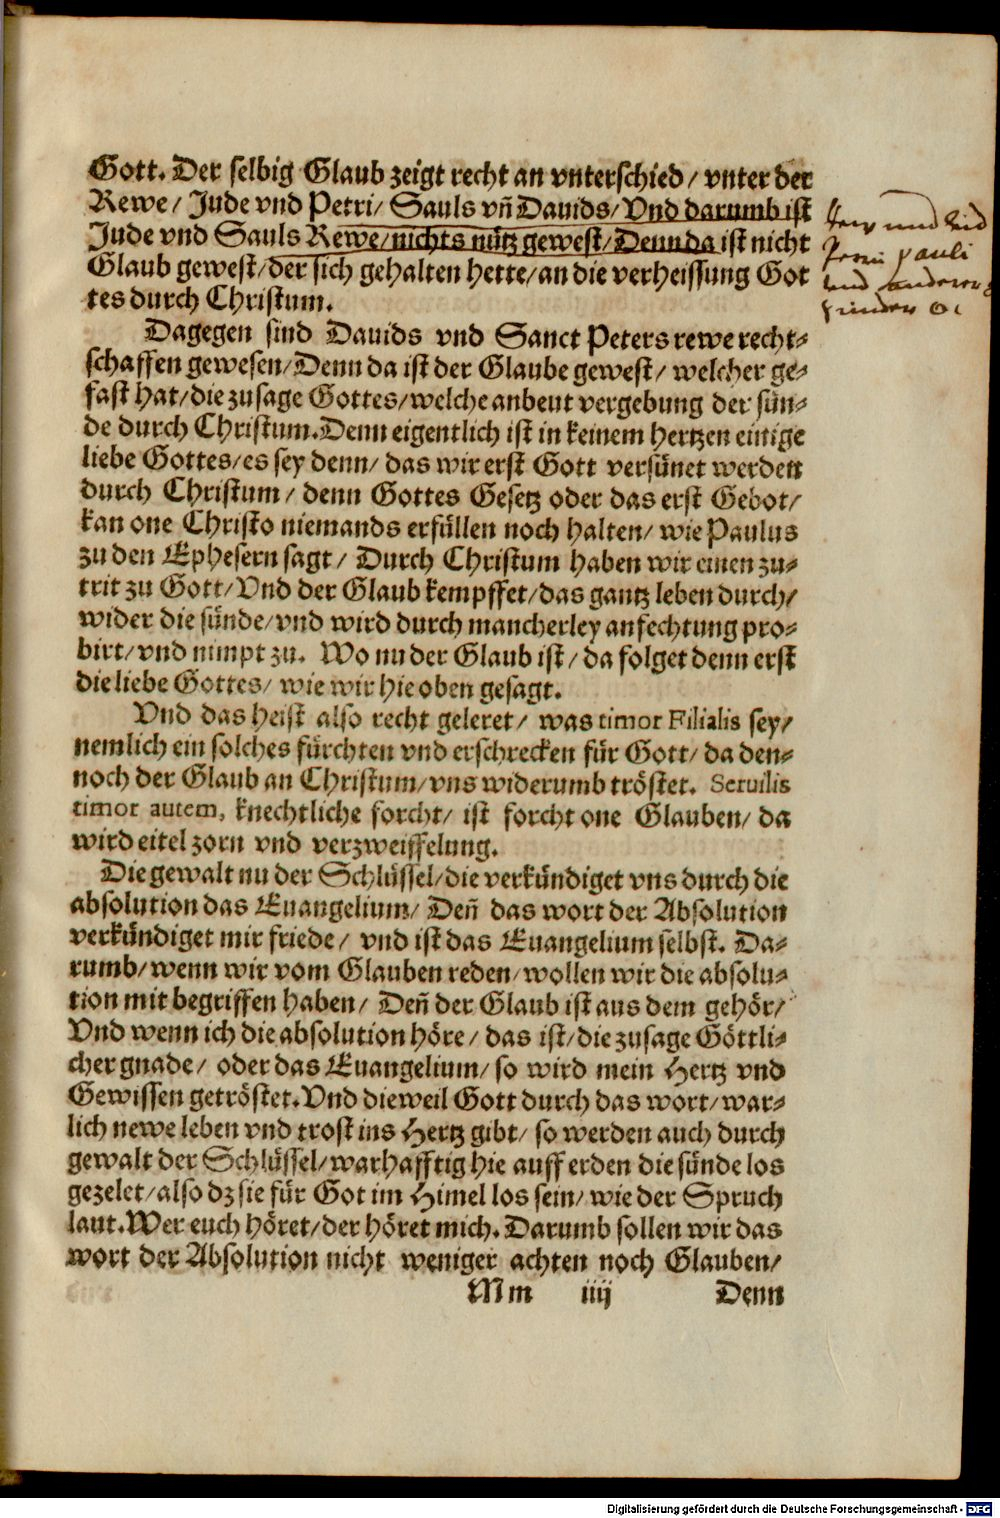 Gott. Der selbig Glaub zeigt recht an vnterschied/ vnter der
Rewe/ Jude vnd Petri/ Sauls vn̄ Dauids/ Vnd darumb ist
Jude vnd Sauls Rewe/ nichts nütz gewest/ Denn da ist nicht
Glaub gewest/ der sich gehalten hette/ an die verheissung Got
tes durch Christum.
Dagegen sind Dauids vnd Sanct Peters rewe recht-
schaffen gewesen/ Denn da ist der Glaube gewest/ welcher ge-
fast hat/ die zusage Gottes/ welche anbeut vergebung der sün-
de durch Christum. Denn eigentlich ist in keinem hertzen einige
liebe Gottes/ es sey denn/ das wir erst Gott versünet werden
durch Christum/ denn Gottes Gesetz oder das erst Gebot/
kan one Christo niemands erfüllen noch halten/ wie Paulus
zu den Ephesern sagt/ Durch Christum haben wir einen zu-
trit zu Gott/ Vnd der Glaub kempffet/ das gantz leben durch/
wider die sünde/ vnd wird durch mancherley anfechtung pro-
birt/ vnd nimpt zu. Wo nu der Glaub ist/ da folget denn erst
die liebe Gottes/ wie wir hie oben gesagt.
Vnd das heist also recht geleret/ was timor Filialis sey/
nemlich ein solches fürchten vnd erschrecken für Gott/ da den-
noch der Glaub an Christum/ vns widerumb tröstet. Seruilis
timor autem, knechtliche forcht/ ist forcht one Glauben/ da
wird eitel zorn vnd verzweiffelung.
Die gewalt nu der Schlüssel/ die verkündiget vns durch die
absolution das Euangelium/ Den̄ das wort der Absolution
verkündiget mir friede/ vnd ist das Euangelium selbst. Da-
rumb/ wenn wir vom Glauben reden/ wollen wir die absolu-
tion mit begriffen haben/ Den̄ der Glaub ist aus dem gehör/
Vnd wenn ich die absolution höre/ das ist/ die zusage Göttli-
cher gnade/ oder das Euangelium/ so wird mein Hertz vnd
Gewissen getröstet. Vnd dieweil Gott durch das wort/ war-
lich newe leben vnd trost ins Hertz gibt/ so werden auch durch
gewalt der Schlüssel/ warhafftig hie auff erden die sünde los
gezelet/ also dz sie für Got im Himel los sein/ wie der Spruch
laut. Wer euch höret/ der höret mich. Darumb sollen wir das
wort der Absolution nicht weniger achten noch Glauben/
Mm iiij Denn
vnd
pauli
vnd anderer
Digitalisierung gefördert durch die Deutsche Forschungsgemeinschaft - DFG